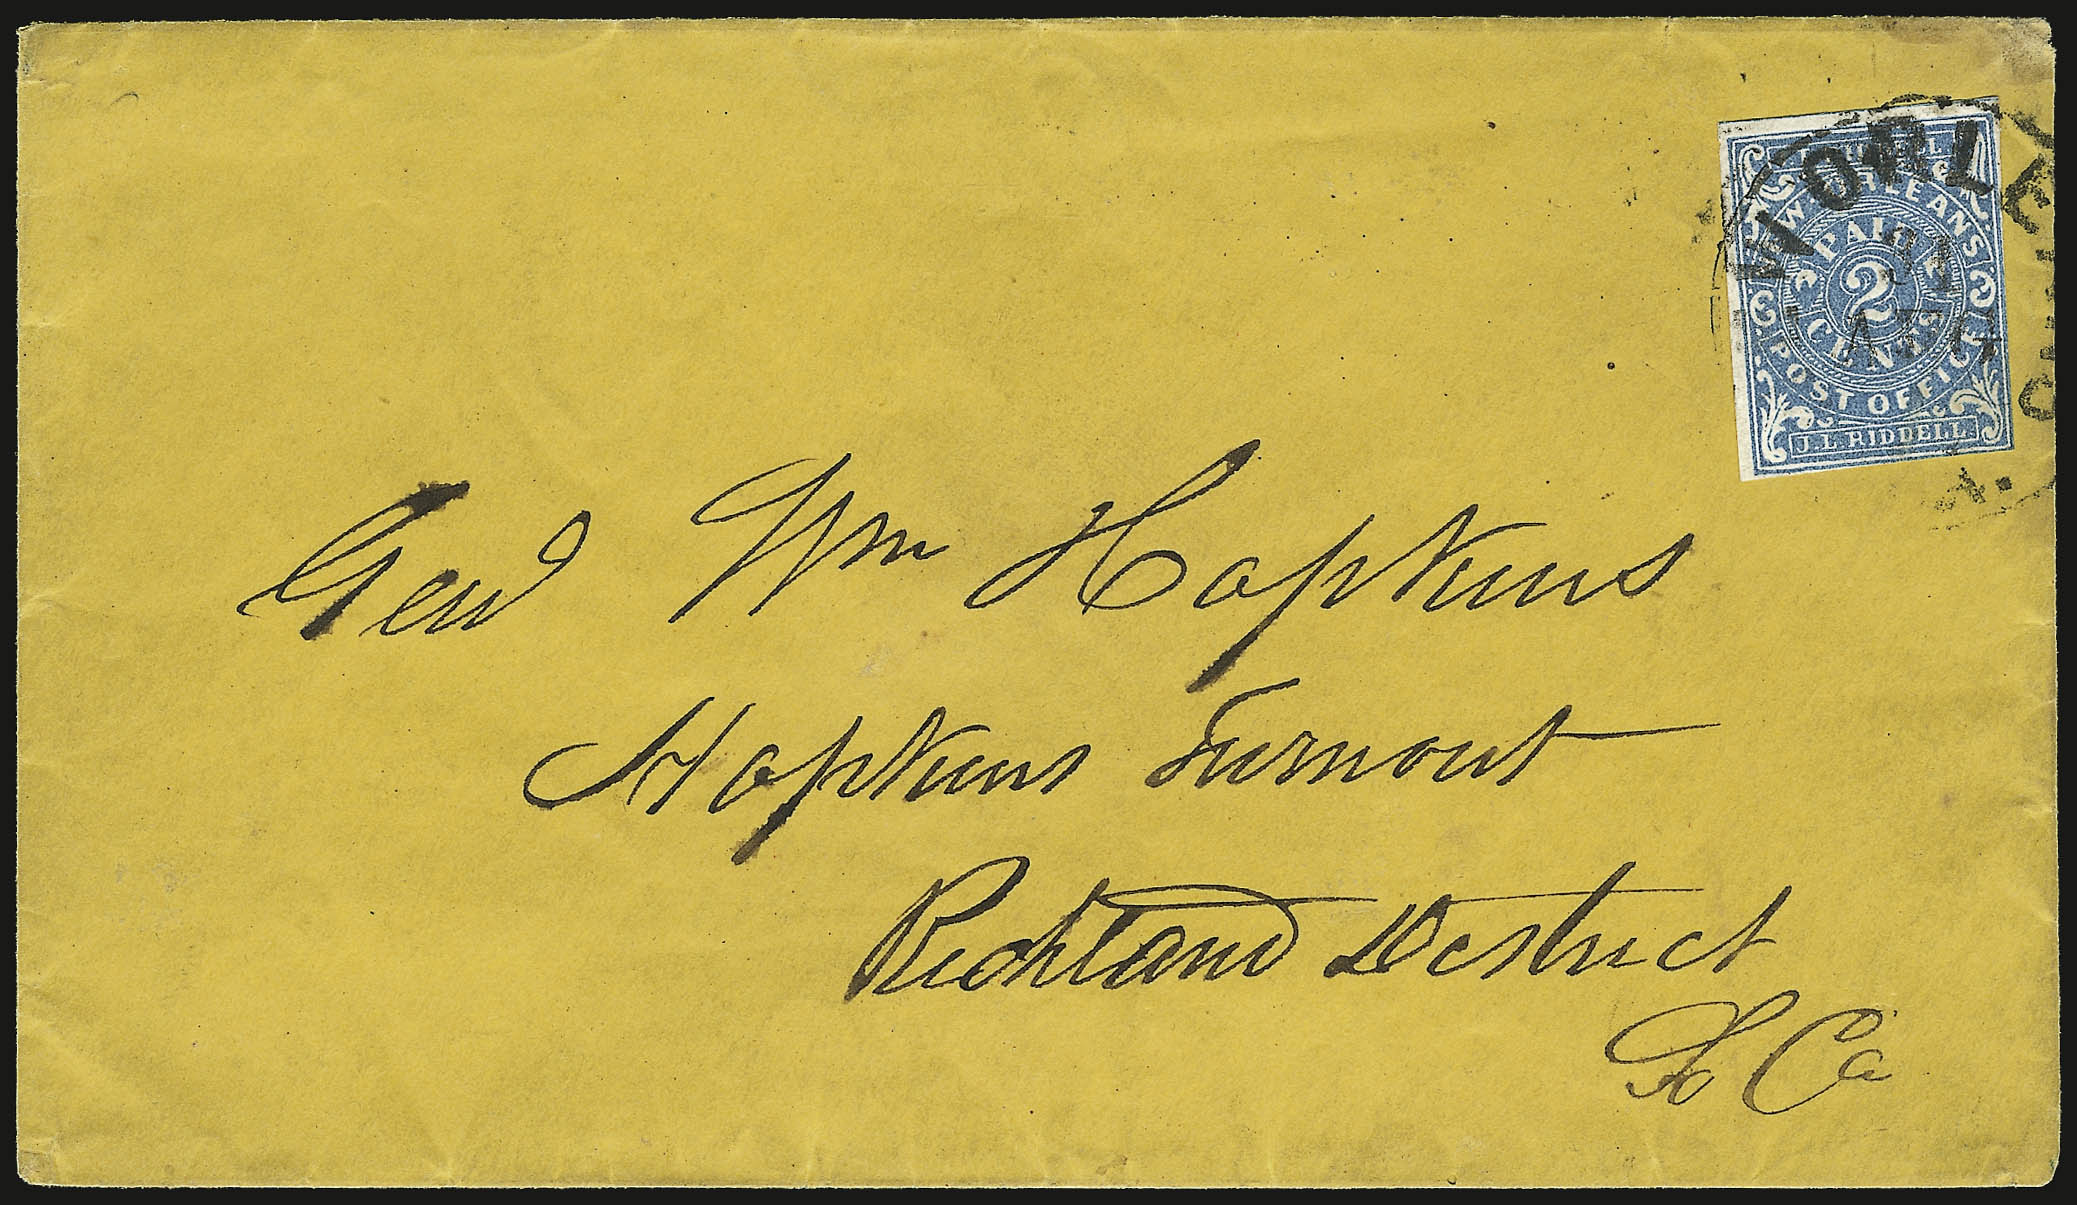 NEW ORLEANS
PAID
2
CENTS
POST OFFICE
J.L. RIDDELL
31
Genl Wm Hopkins
Hopkins Turnout
Richland District
So Ca